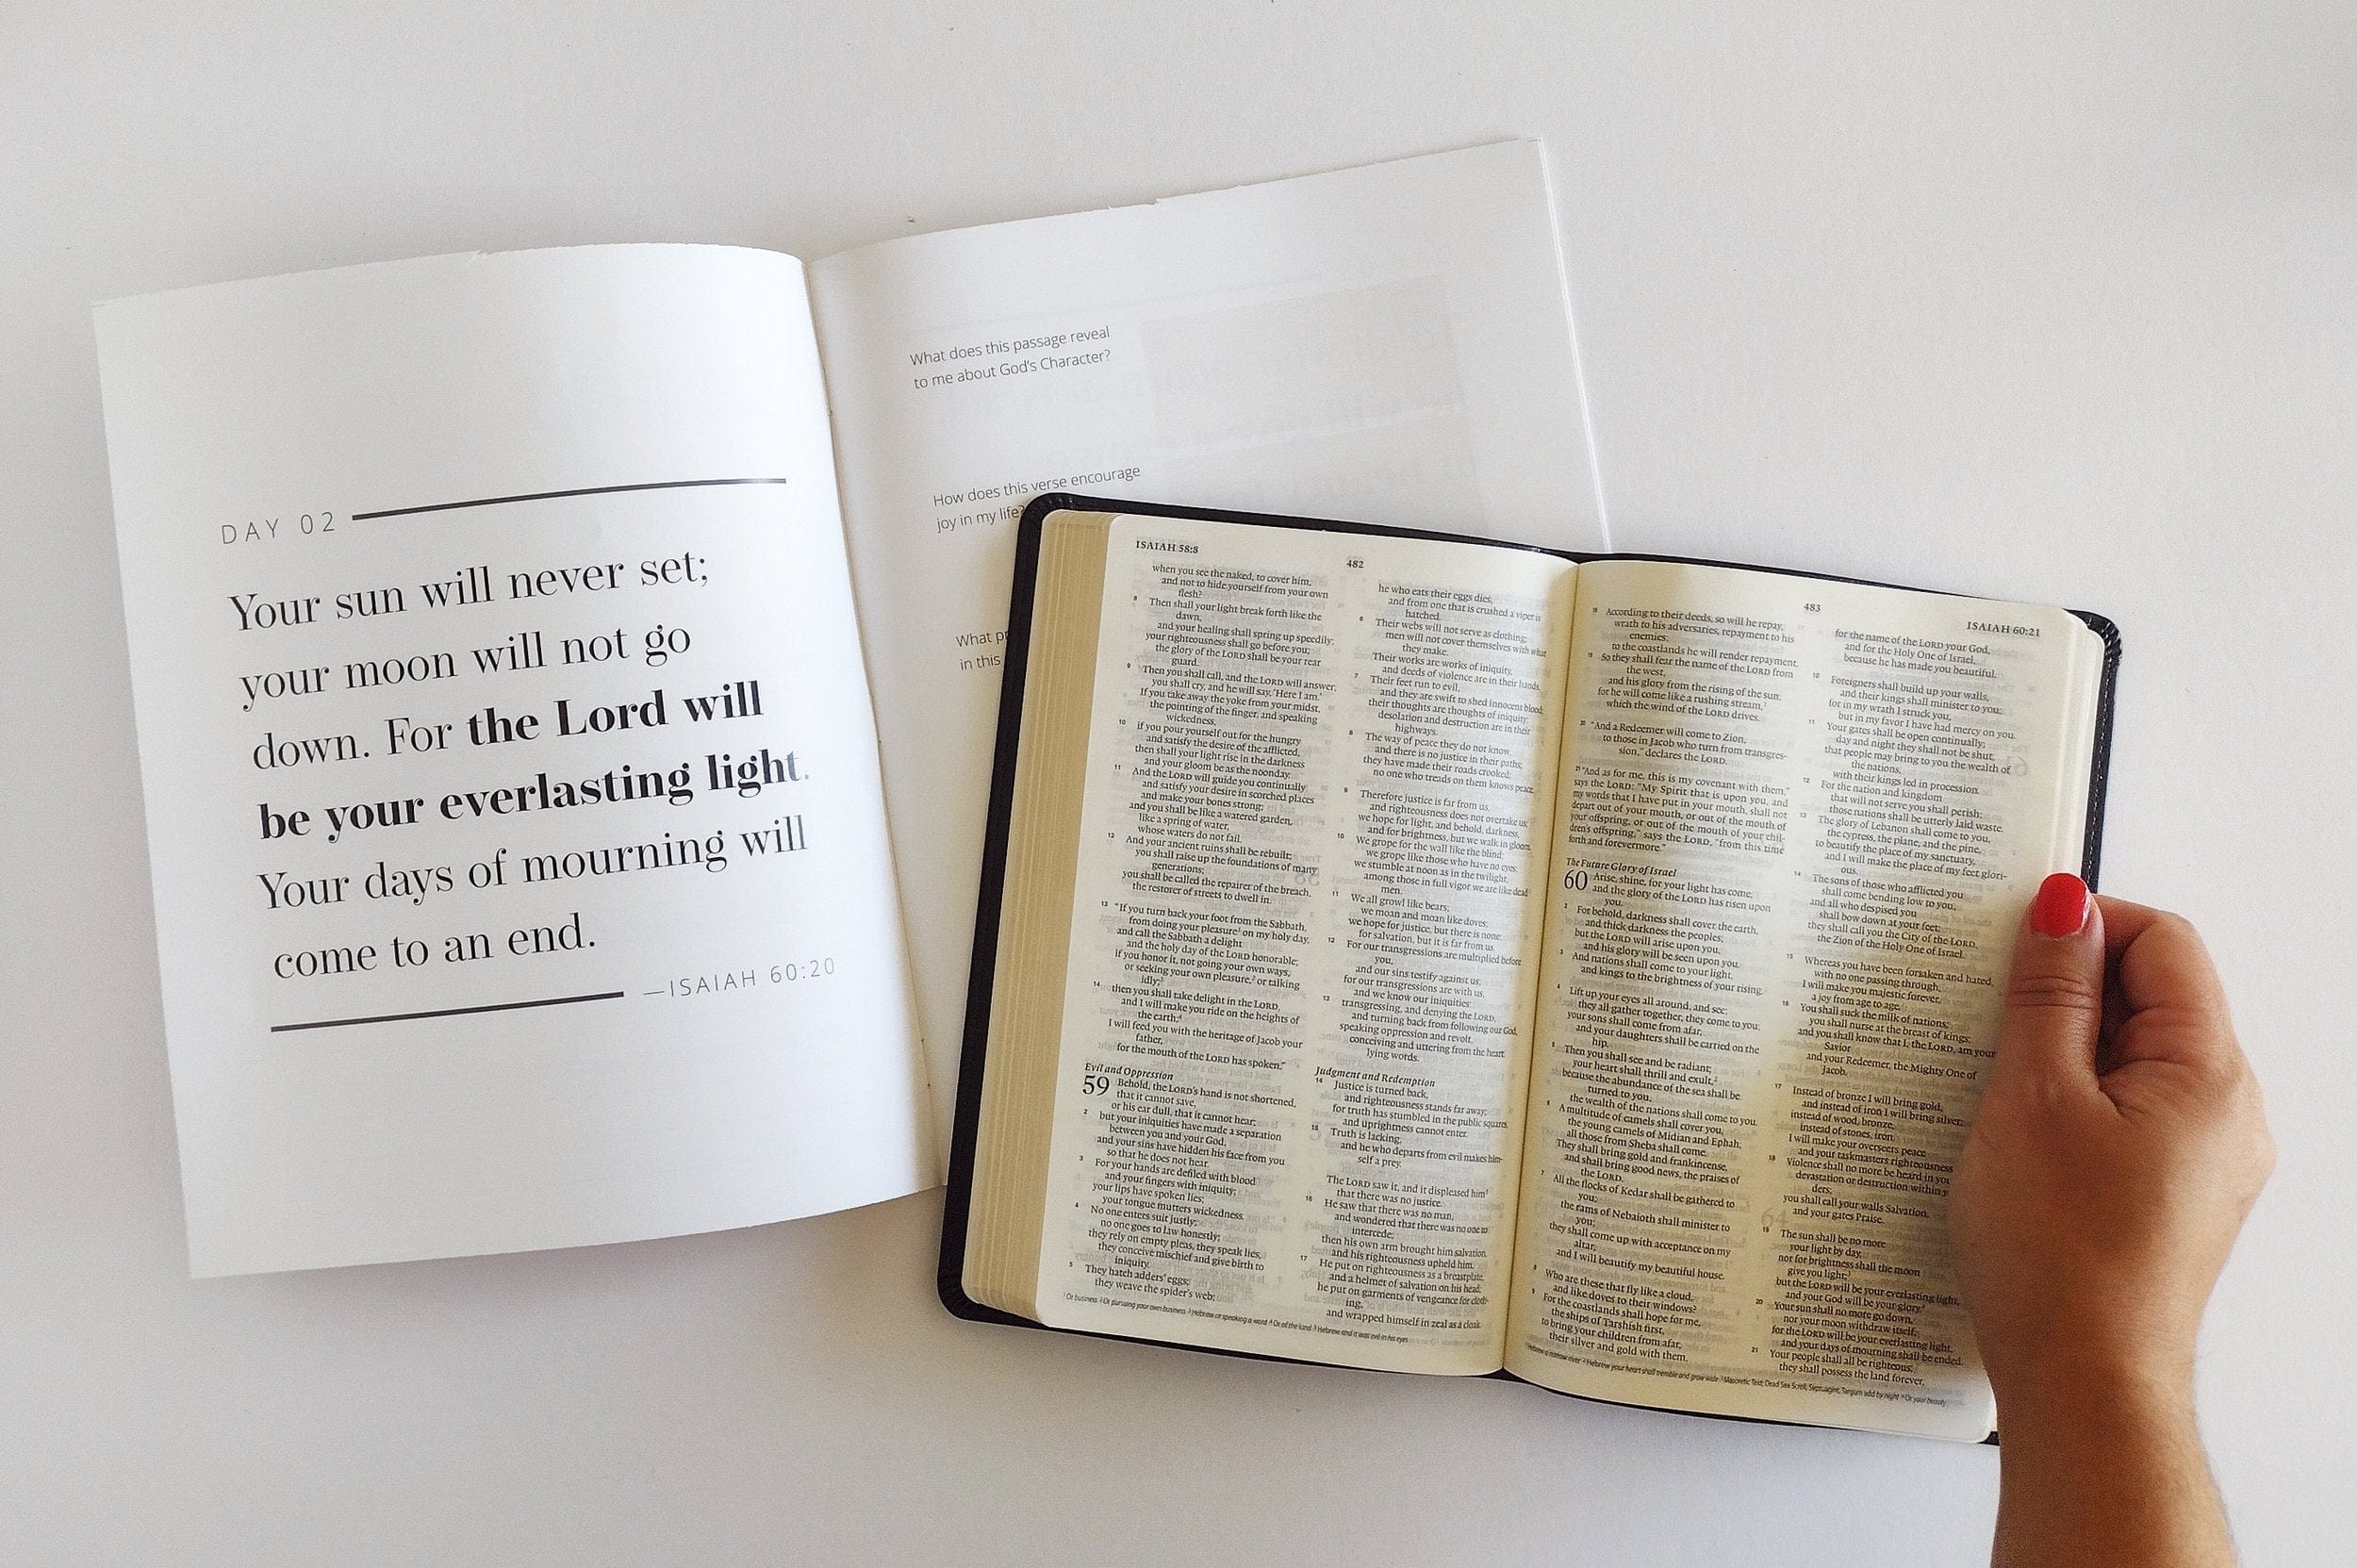 DAY 02
Your sun will never set;
your moon will not go
down. For the Lord will
be your everlasting light.
Your days of mourning will
come to an end.
—ISAIAH 60:20
What does this passage reveal
to me about God's Character?
How does this verse encourage
joy in my life?
What
in this
ISAIAH 58:8
482
when you see the naked, to cover him,
and not to hide yourself from your own
flesh?
8 Then shall your light break forth like the
dawn,
and your healing shall spring up speedily;
your righteousness shall go before you;
the glory of the LORD shall be your rear
guard.
9 Then you shall call, and the LORD will answer;
you shall cry, and he will say, 'Here I am.'
If you take away the yoke from your midst,
the pointing of the finger, and speaking
wickedness,
10 if you pour yourself out for the hungry
and satisfy the desire of the afflicted,
then shall your light rise in the darkness
and your gloom be as the noonday.
11 And the LORD will guide you continually
and satisfy your desire in scorched places
and make your bones strong;
and you shall be like a watered garden,
like a spring of water,
whose waters do not fail.
12 And your ancient ruins shall be rebuilt;
you shall raise up the foundations of many
generations;
you shall be called the repairer of the breach,
the restorer of streets to dwell in.
13 "If you turn back your foot from the Sabbath,
from doing your pleasure¹ on my holy day,
and call the Sabbath a delight
and the holy day of the LORD honorable;
if you honor it, not going your own ways,
or seeking your own pleasure,² or talking
idly;³
14 then you shall take delight in the LORD,
and I will make you ride on the heights of
the earth;⁴
I will feed you with the heritage of Jacob your
father,
for the mouth of the LORD has spoken."
Evil and Oppression
59 Behold, the LORD's hand is not shortened,
that it cannot save,
or his ear dull, that it cannot hear;
2 but your iniquities have made a separation
between you and your God,
and your sins have hidden his face from you
so that he does not hear.
3 For your hands are defiled with blood
and your fingers with iniquity;
your lips have spoken lies;
your tongue mutters wickedness.
4 No one enters suit justly;
no one goes to law honestly;
they rely on empty pleas, they speak lies,
they conceive mischief and give birth to
iniquity.
5 They hatch adders' eggs;
they weave the spider's web;
he who eats their eggs dies,
and from one that is crushed a viper is
hatched.
6 Their webs will not serve as clothing;
men will not cover themselves with what
they make.
Their works are works of iniquity,
and deeds of violence are in their hands.
7 Their feet run to evil,
and they are swift to shed innocent blood;
their thoughts are thoughts of iniquity;
desolation and destruction are in their
highways.
8 The way of peace they do not know,
and there is no justice in their paths;
they have made their roads crooked;
no one who treads on them knows peace.
9 Therefore justice is far from us,
and righteousness does not overtake us;
we hope for light, and behold, darkness,
and for brightness, but we walk in gloom.
10 We grope for the wall like the blind;
we grope like those who have no eyes;
we stumble at noon as in the twilight,
among those in full vigor we are like dead
men.
11 We all growl like bears;
we moan and moan like doves;
we hope for justice, but there is none;
for salvation, but it is far from us.
12 For our transgressions are multiplied before
you,
and our sins testify against us;
for our transgressions are with us,
and we know our iniquities:
13 transgressing, and denying the LORD,
and turning back from following our God,
speaking oppression and revolt,
conceiving and uttering from the heart
lying words.
Judgment and Redemption
14 Justice is turned back,
and righteousness stands far away;
for truth has stumbled in the public squares,
and uprightness cannot enter.
15 Truth is lacking,
and he who departs from evil makes him-
self a prey.
The LORD saw it, and it displeased him⁵
that there was no justice.
16 He saw that there was no man,
and wondered that there was no one to
intercede;
then his own arm brought him salvation,
and his righteousness upheld him.
17 He put on righteousness as a breastplate,
and a helmet of salvation on his head;
he put on garments of vengeance for cloth-
ing,
and wrapped himself in zeal as a cloak.
¹ Or business ² Or pursuing your own business ³ Hebrew or speaking a word ⁴ Or of the land ⁵ Hebrew and it was evil in his eyes
483
ISAIAH 60:21
18 According to their deeds, so will he repay,
wrath to his adversaries, repayment to his
enemies;
to the coastlands he will render repayment.
19 So they shall fear the name of the LORD from
the west,
and his glory from the rising of the sun;
for he will come like a rushing stream,¹
which the wind of the LORD drives.
20 "And a Redeemer will come to Zion,
to those in Jacob who turn from transgres-
sion," declares the LORD.
21 "And as for me, this is my covenant with them,"
says the LORD: "My Spirit that is upon you, and
my words that I have put in your mouth, shall not
depart out of your mouth, or out of the mouth of
your offspring, or out of the mouth of your chil-
dren's offspring," says the LORD, "from this time
forth and forevermore."
The Future Glory of Israel
60 Arise, shine, for your light has come,
and the glory of the LORD has risen upon
you.
2 For behold, darkness shall cover the earth,
and thick darkness the peoples;
but the LORD will arise upon you,
and his glory will be seen upon you.
3 And nations shall come to your light,
and kings to the brightness of your rising.
4 Lift up your eyes all around, and see;
they all gather together, they come to you;
your sons shall come from afar,
and your daughters shall be carried on the
hip.
5 Then you shall see and be radiant;
your heart shall thrill and exult,²
because the abundance of the sea shall be
turned to you,
the wealth of the nations shall come to you.
6 A multitude of camels shall cover you,
the young camels of Midian and Ephah;
all those from Sheba shall come.
They shall bring gold and frankincense,
and shall bring good news, the praises of
the LORD.
7 All the flocks of Kedar shall be gathered to
you;
the rams of Nebaioth shall minister to
you;
they shall come up with acceptance on my
altar,
and I will beautify my beautiful house.
8 Who are these that fly like a cloud,
and like doves to their windows?
9 For the coastlands shall hope for me,
the ships of Tarshish first,
to bring your children from afar,
their silver and gold with them,
for the name of the LORD your God,
and for the Holy One of Israel,
because he has made you beautiful.
10 Foreigners shall build up your walls,
and their kings shall minister to you;
for in my wrath I struck you,
but in my favor I have had mercy on you.
11 Your gates shall be open continually;
day and night they shall not be shut,
that people may bring to you the wealth of
the nations,
with their kings led in procession.
12 For the nation and kingdom
that will not serve you shall perish;
those nations shall be utterly laid waste.
13 The glory of Lebanon shall come to you,
the cypress, the plane, and the pine,
to beautify the place of my sanctuary,
and I will make the place of my feet glori-
ous.
14 The sons of those who afflicted you
shall come bending low to you,
and all who despised you
shall bow down at your feet;
they shall call you the City of the LORD,
the Zion of the Holy One of Israel.
15 Whereas you have been forsaken and hated,
with no one passing through,
I will make you majestic forever,
a joy from age to age.
16 You shall suck the milk of nations;
you shall nurse at the breast of kings;
and you shall know that I, the LORD, am your
Savior
and your Redeemer, the Mighty One of
Jacob.
17 Instead of bronze I will bring gold,
and instead of iron I will bring silver;
instead of wood, bronze,
instead of stones, iron.
I will make your overseers peace
and your taskmasters righteousness
18 Violence shall no more be heard in
devastation or destruction within
ders;
you shall call your walls Salvation,
and your gates Praise.
19 The sun shall be no more
your light by day,
nor for brightness shall the moon
give you light;³
but the LORD will be your everlasting light,
and your God will be your glory.⁴
20 Your sun shall no more go down,
nor your moon withdraw itself;
for the LORD will be your everlasting light,
and your days of mourning shall be ended.
21 Your people shall all be righteous;
they shall possess the land forever,
¹ Hebrew a narrow river ² Hebrew your heart shall tremble and grow wide ³ Masoretic Text; Dead Sea Scroll, Septuagint, Targum add by night ⁴ Or your beauty